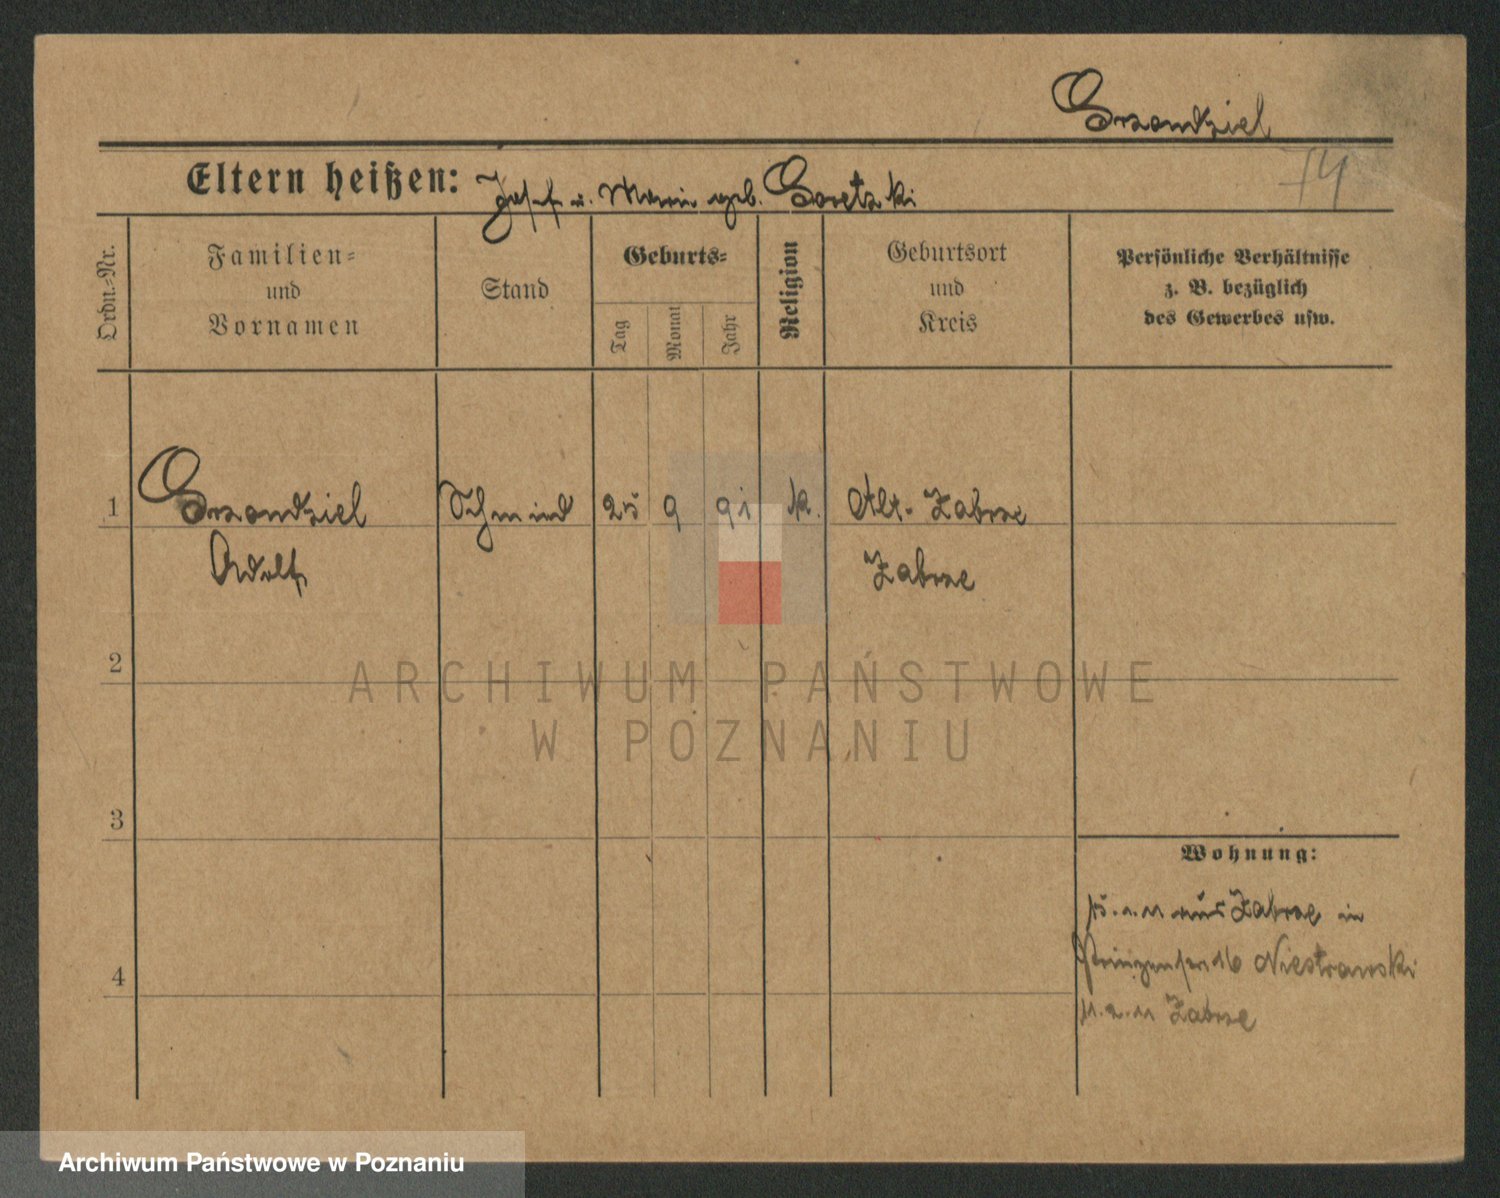 Grzondziel
Eltern heißen: Josef u. Marie geb. Goretzki
74
Ordn.-Nr.
Familien-
und
Vornamen
Stand
Geburts-
Tag
Monat
Jahr
Religion
Geburtsort
und
Kreis
Persönliche Verhältnisse
z. B. bezüglich
des Gewerbes usw.
1 Grzondziel Schmied 25 9 91 k. Alt-Zabrze
Adolf Zabrze
2
3
4
Wohnung:
1.11 aus Zabrze in
16 Niestrawski
2.11 Zabrze
ARCHIWUM PAŃSTWOWE
W POZNANIU
Archiwum Państwowe w Poznaniu